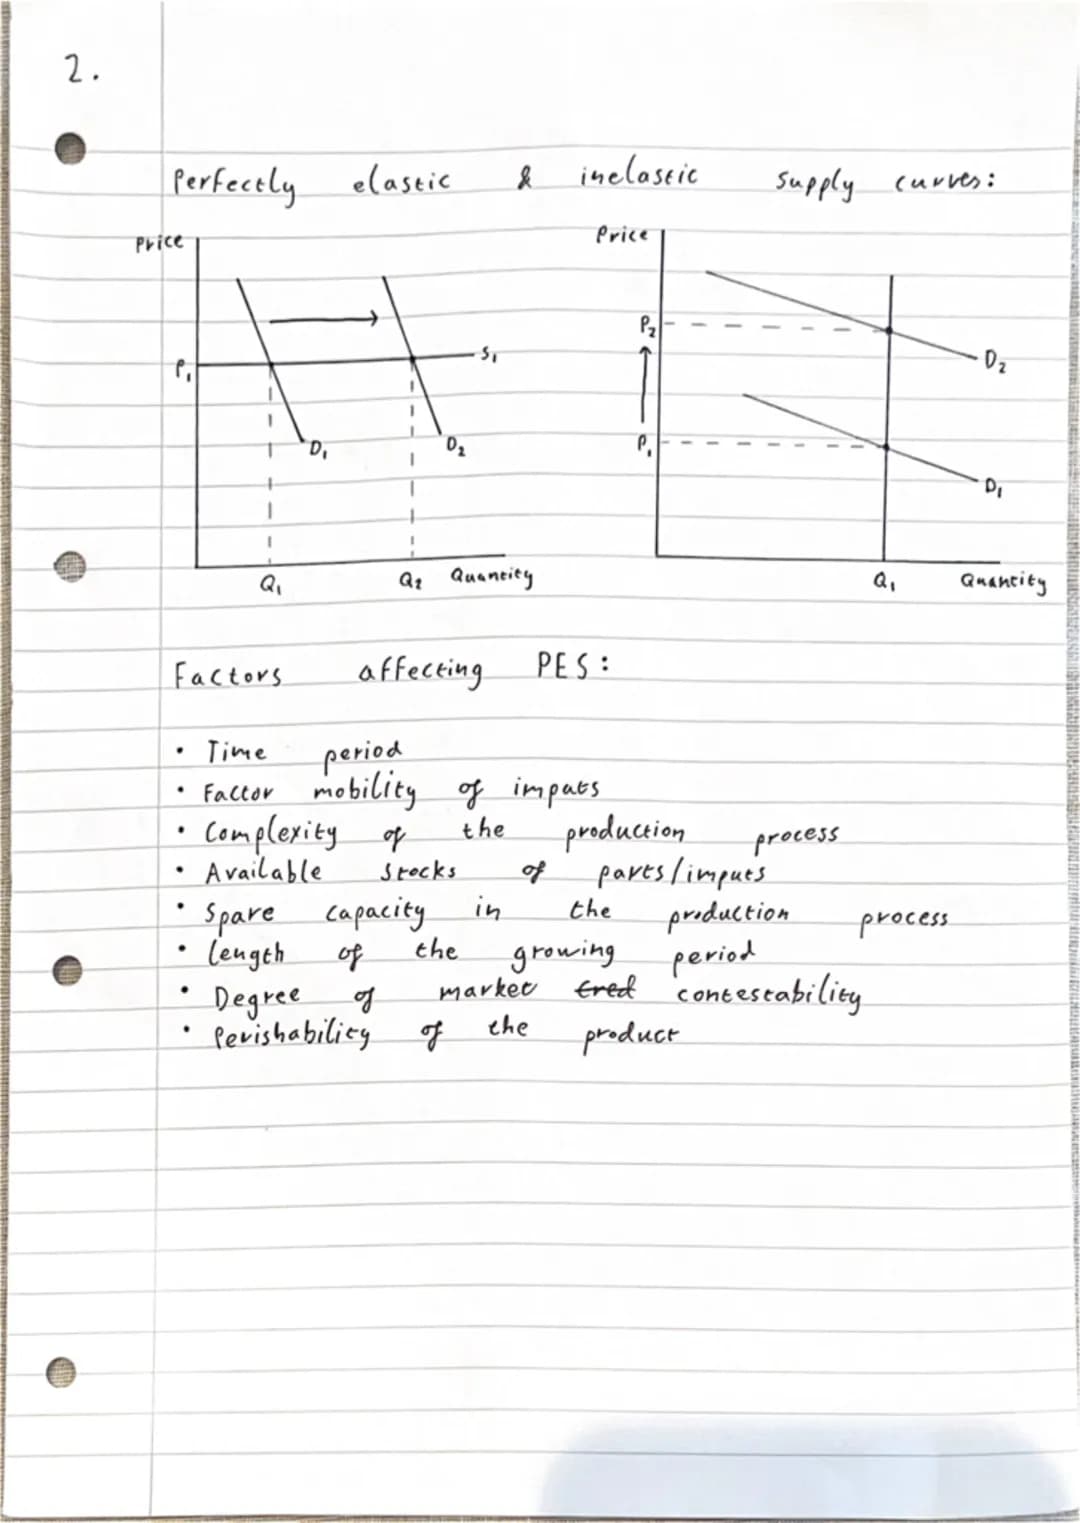 2.
Perfectly elastic & inelastic supply curves:
Price
P₁
S₁
D₁
D₂
Q₁
Q₂
Quantity
Price
P₂
P₁
D₂
D₁
Q₁
Quantity
Factors affecting PES:
• Time period
• Factor mobility of imputs
• Complexity of the production process
• Available stocks of parts/imputs
• Spare capacity in the production process
• length of the growing period
• Degree of market cred contestability
• Perishability of the product